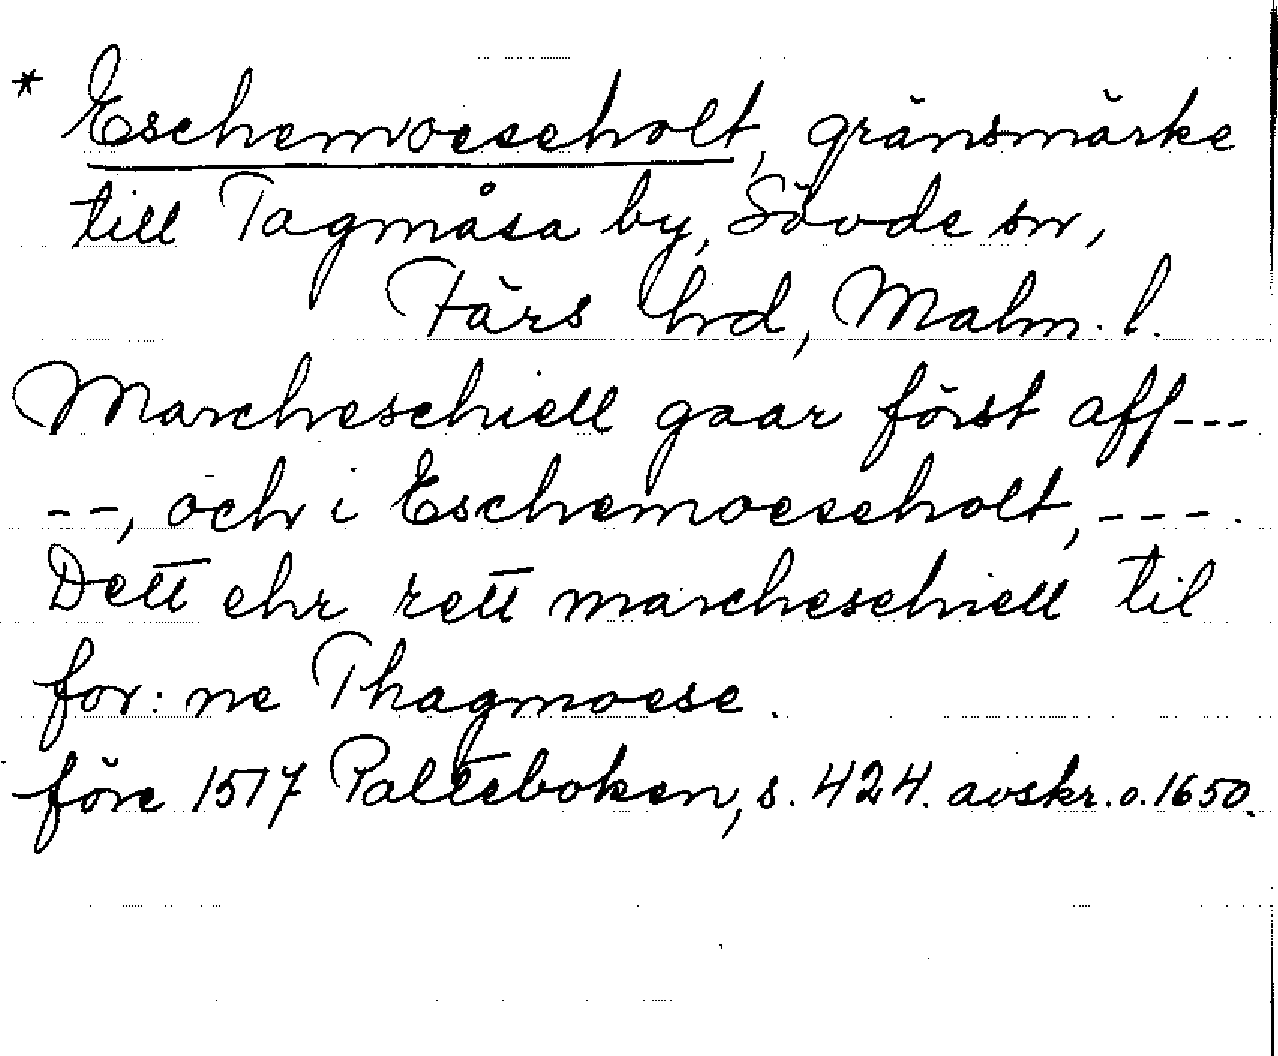 * Eschemoeseholt, gränsmärke
till Tagmåsa by, Sövde sn,
Färs hd, Malm. l.
Marcheschiell gaar först aff---
--, och i Eschemoeseholt, ---.
Dett ehr rett marcheschiell til
for: ne Thagmoese.
före 1517 Palteboken, s. 424. avskr. o. 1650.